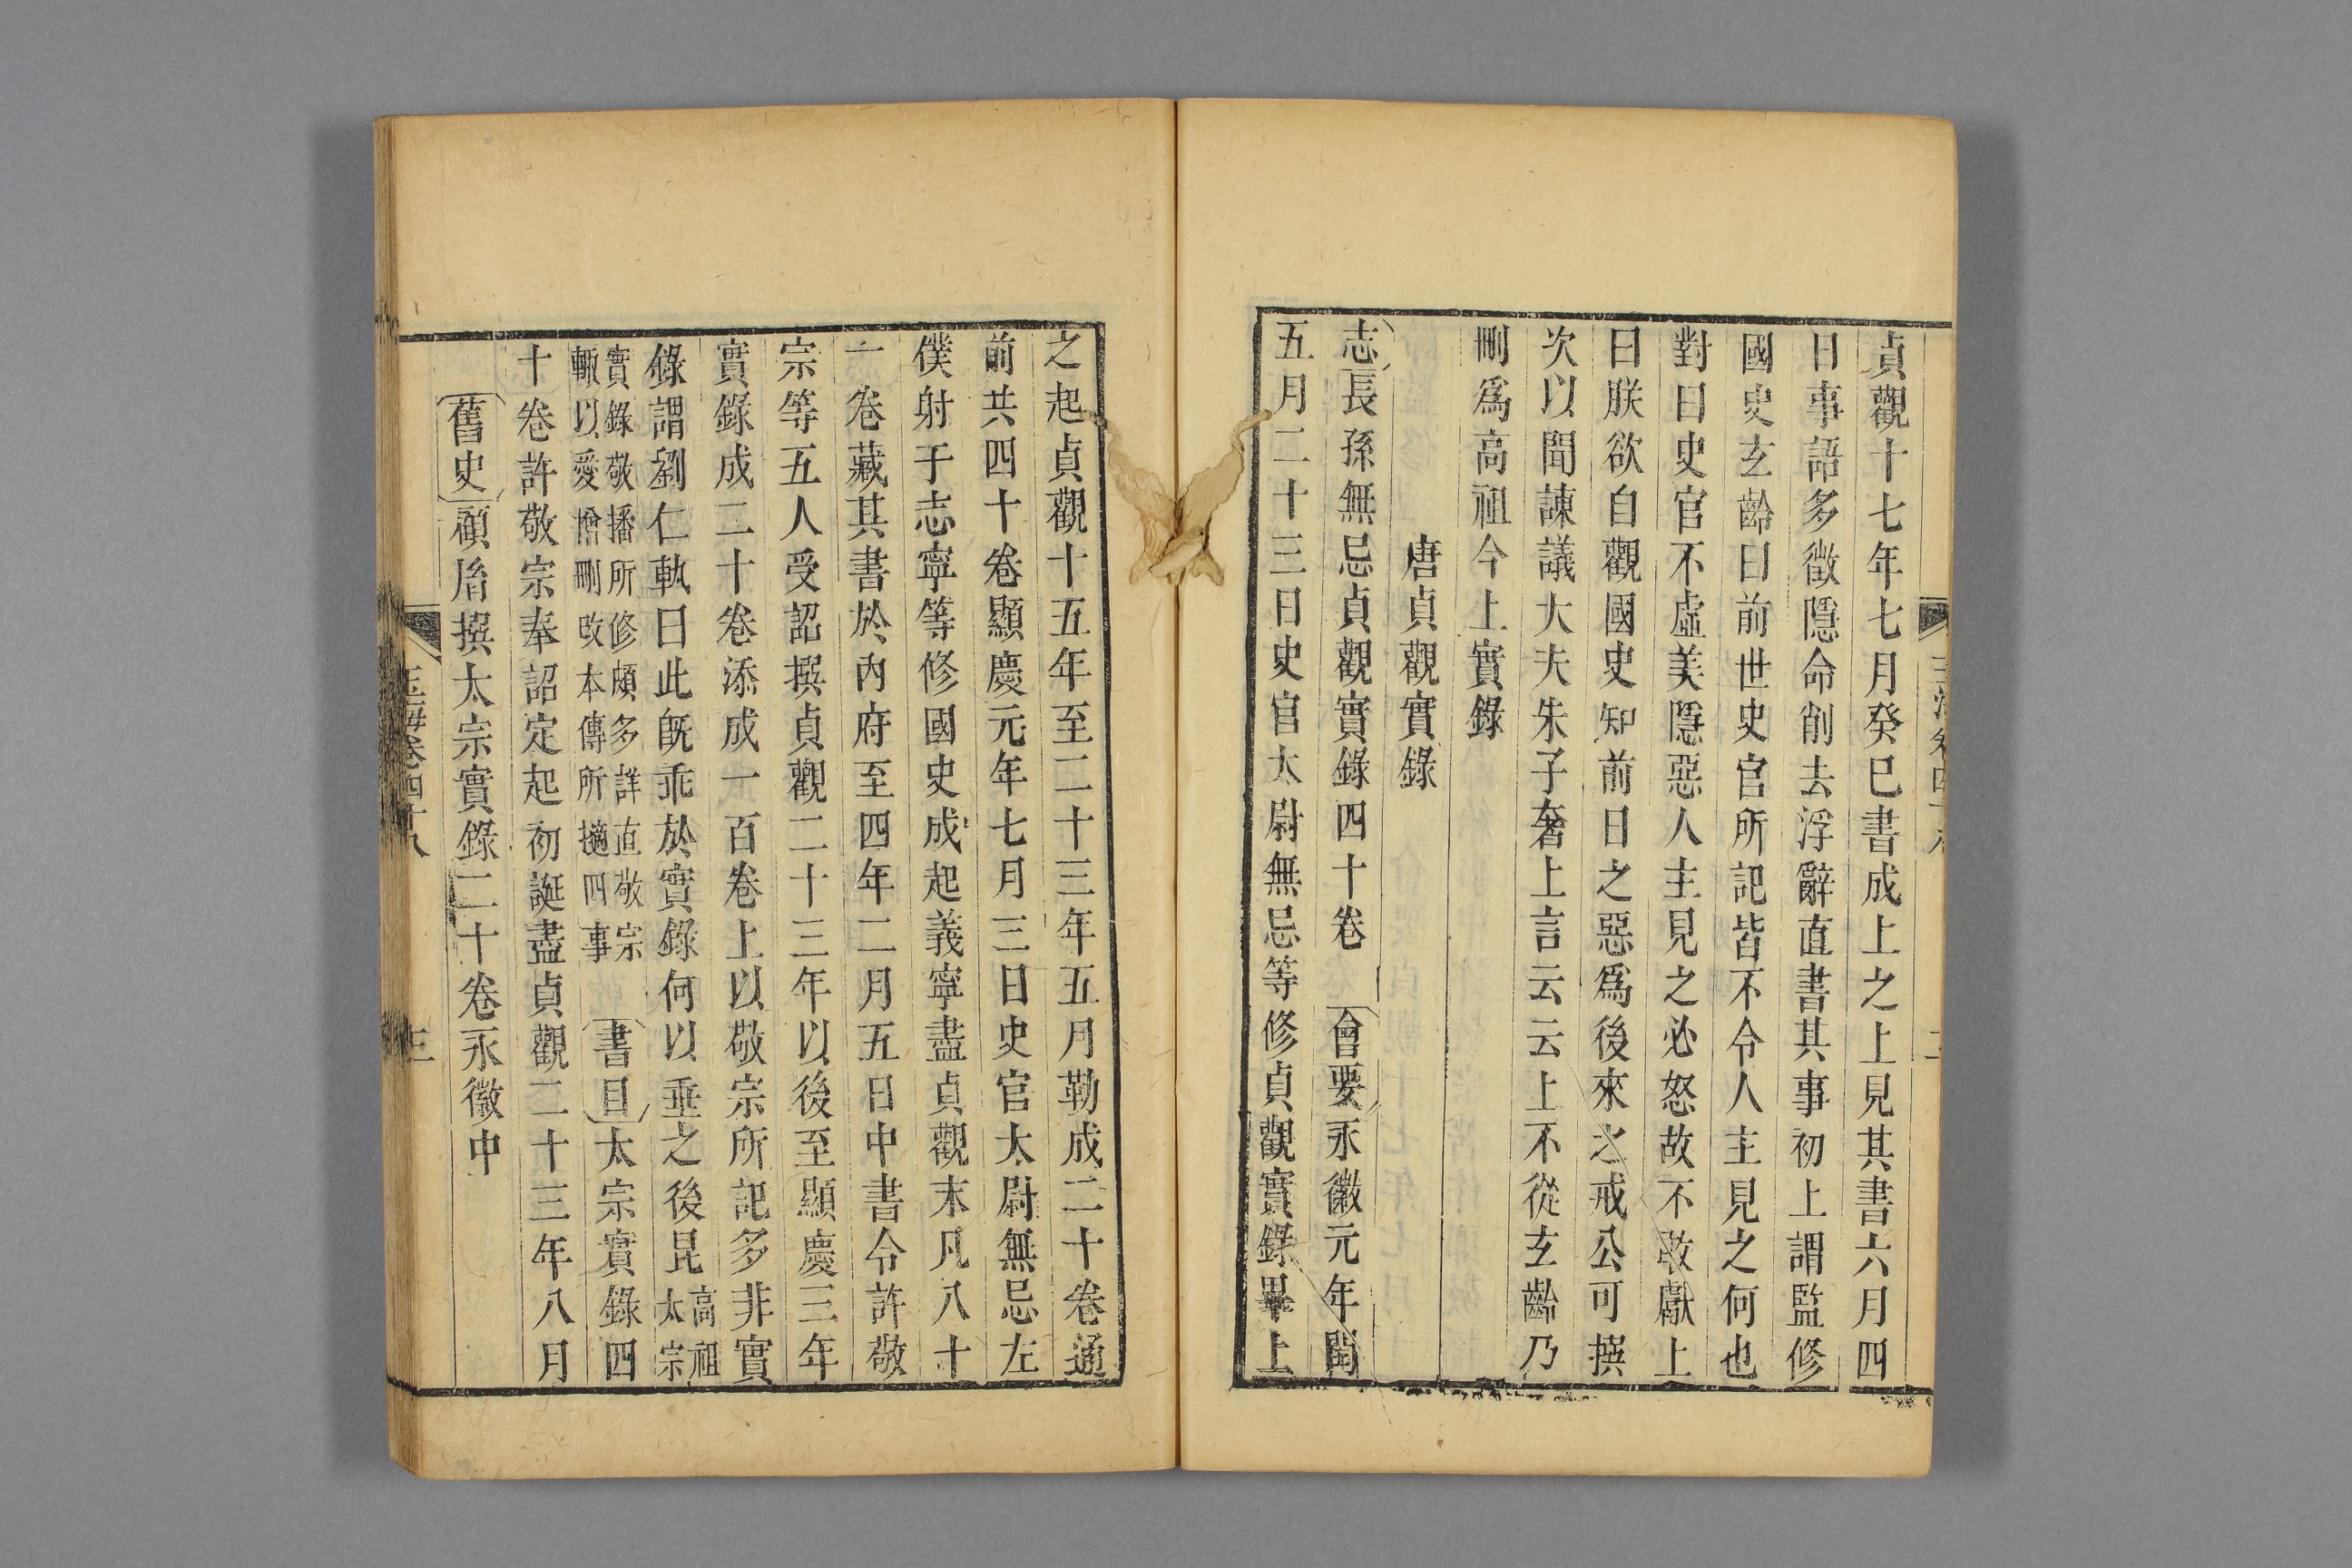 貞觀十七年七月癸巳書成上之上見其書六月四
日事語多微隱命削去浮辭直書其事初上謂監修
國史玄齡曰前世史官所記皆不令人主見之何也
對曰史官不虛美隱惡人主見之必怒故不敢獻上
曰朕欲自觀國史知前日之惡爲後來之戒公可撰
次以聞諫議大夫朱子奢上言云云上不從玄齡乃
刪爲高祖今上實錄
唐貞觀實錄
志長孫無忌貞觀實錄四十卷 會要永徽元年閏
五月二十三日史官太尉無忌等修貞觀實錄畢上
之起貞觀十五年至二十三年五月勒成二十卷通
前共四十卷顯慶元年七月三日史官太尉無忌左
僕射于志寧等修國史成起義寧盡貞觀末凡八十
一卷藏其書於內府至四年二月五日中書令許敬
宗等五人受詔撰貞觀二十三年以後至顯慶三年
實錄成二十卷添成一百卷上以敬宗所記多非實
錄謂劉仁軌曰此旣乖於實錄何以垂之後昆高祖太宗
實錄敬播所修頗多詳直敬宗輙以愛憎刪改本傳所擿四事 書目太宗實錄四
十卷許敬宗奉詔定起初誕盡貞觀二十三年八月
舊史顧胤撰太宗實錄二十卷永徽中
玉海卷四十八
三